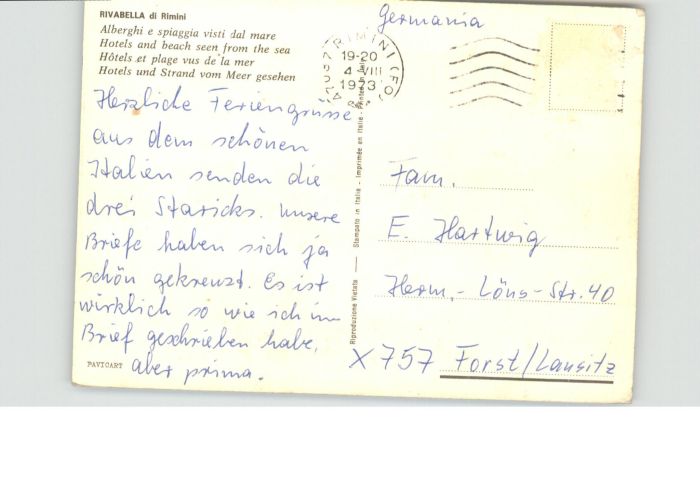 RIVABELLA di Rimini
Alberghi e spiaggia visti dal mare
Hotels and beach seen from the sea
Hôtels et plage vus de la mer
Hotels und Strand vom Meer gesehen
Herzliche Feriengrüsse
aus dem schönen
Italien senden die
drei Staricks. Unsere
Briefe haben sich ja
schön gekreuzt. Es ist
wirklich so wie ich im
Brief geschrieben habe,
aber prima.
PAVICART
Riproduzione Vietata — Stampato in Italia - Imprimée en Italie - Printed in Italy
RIMINI (FO)
19-20
4 VIII
1973
Germania
Fam.
E. Hartwig
Herm.-Löns-Str. 40
X 757 Forst/Lausitz